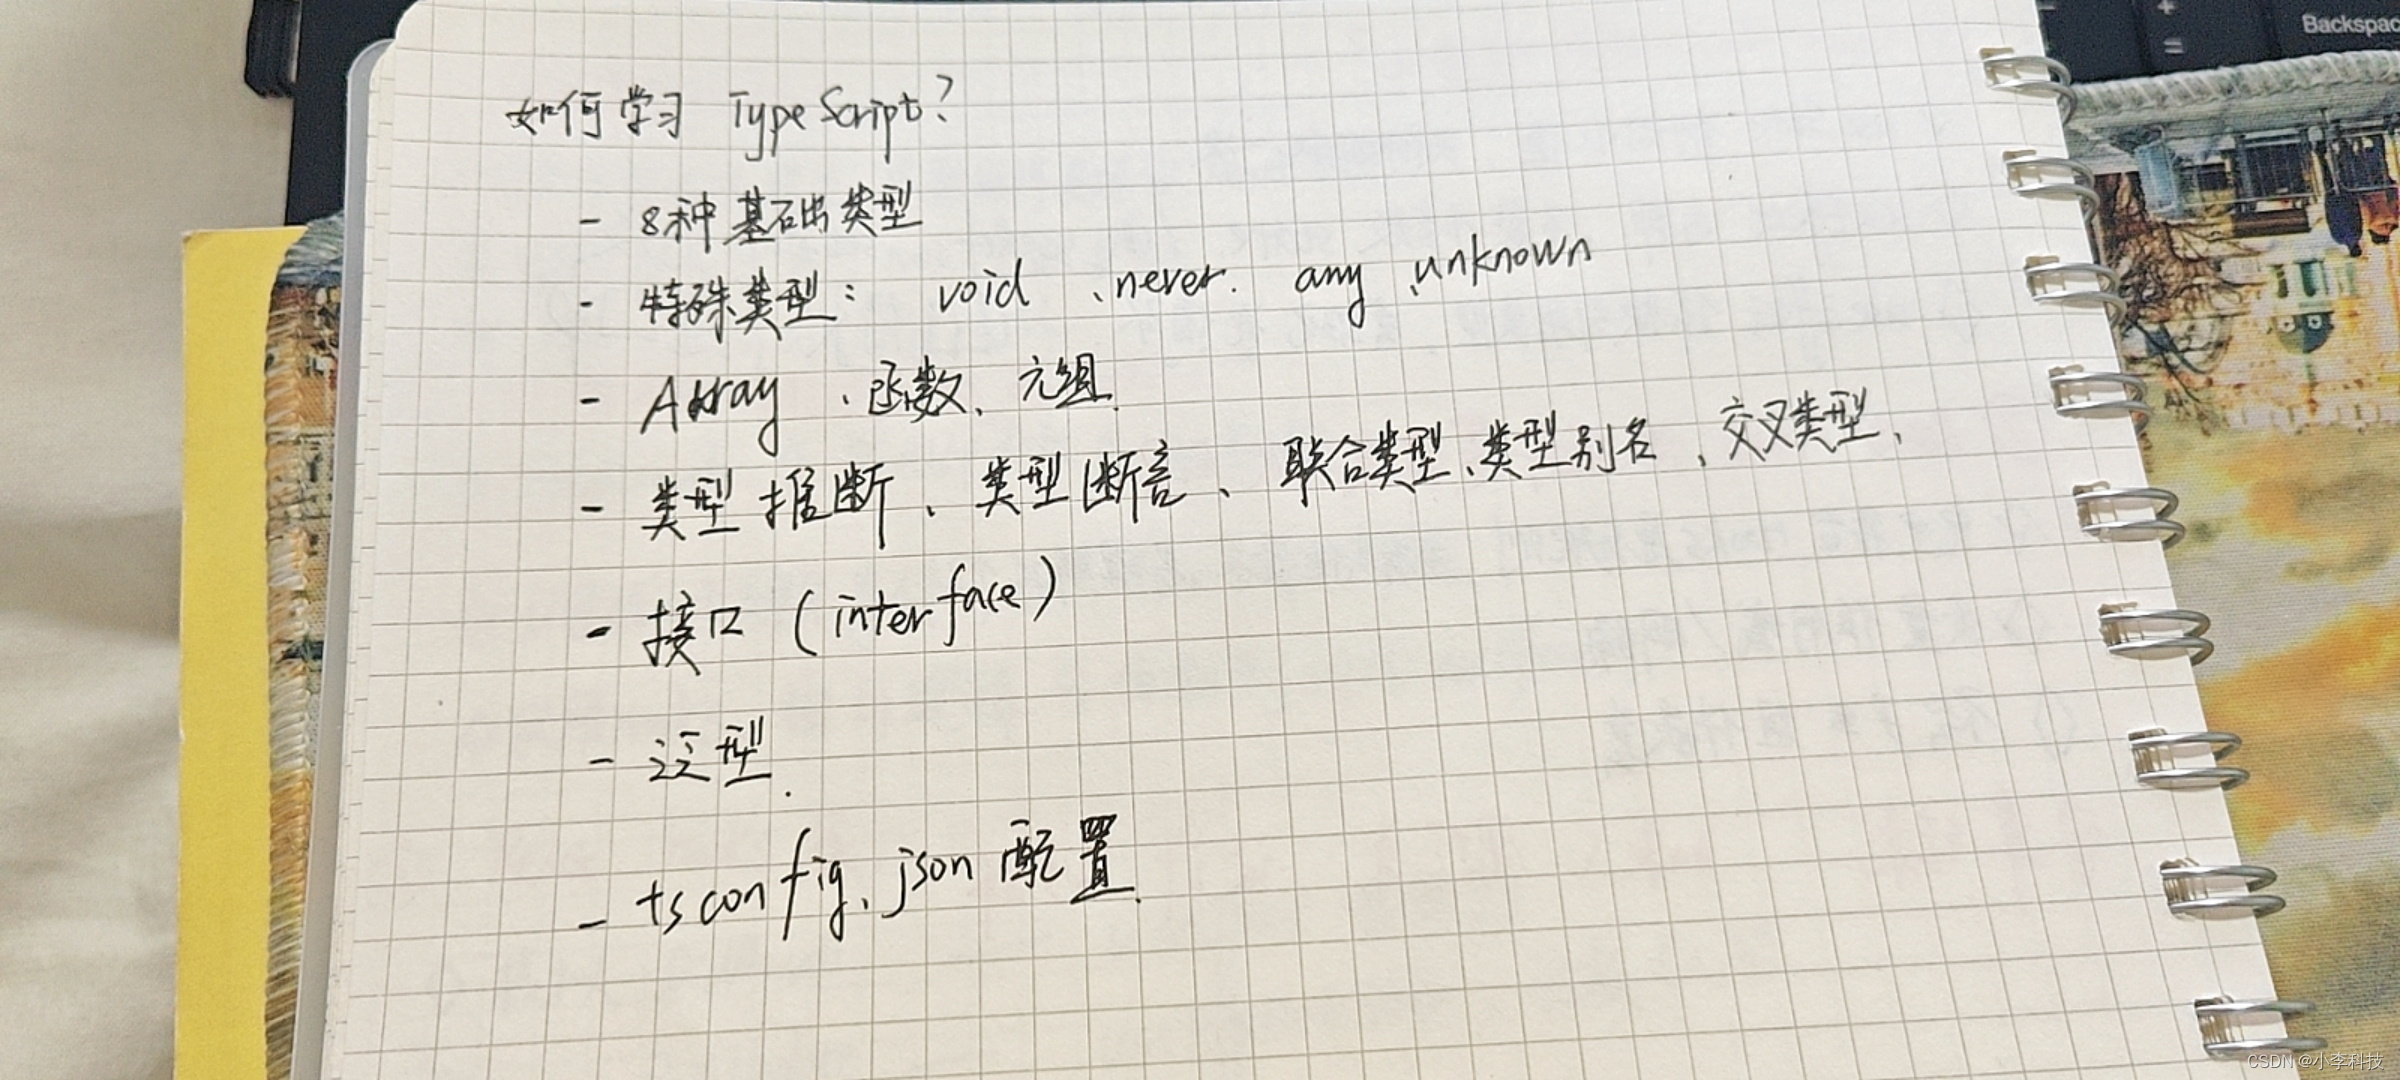 如何学习 TypeScript?
- 8种基础类型
- 特殊类型: void 、never. any 、unknown
- Array 、函数、元组.
- 类型推断、类型断言、联合类型、类型别名、交叉类型、
- 接口 (interface)
- 泛型.
- tsconfig.json 配置.
Backspac
CSDN @小李科技